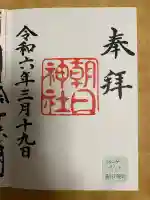 奉拝
朝日
神社
令和六年三月十九日